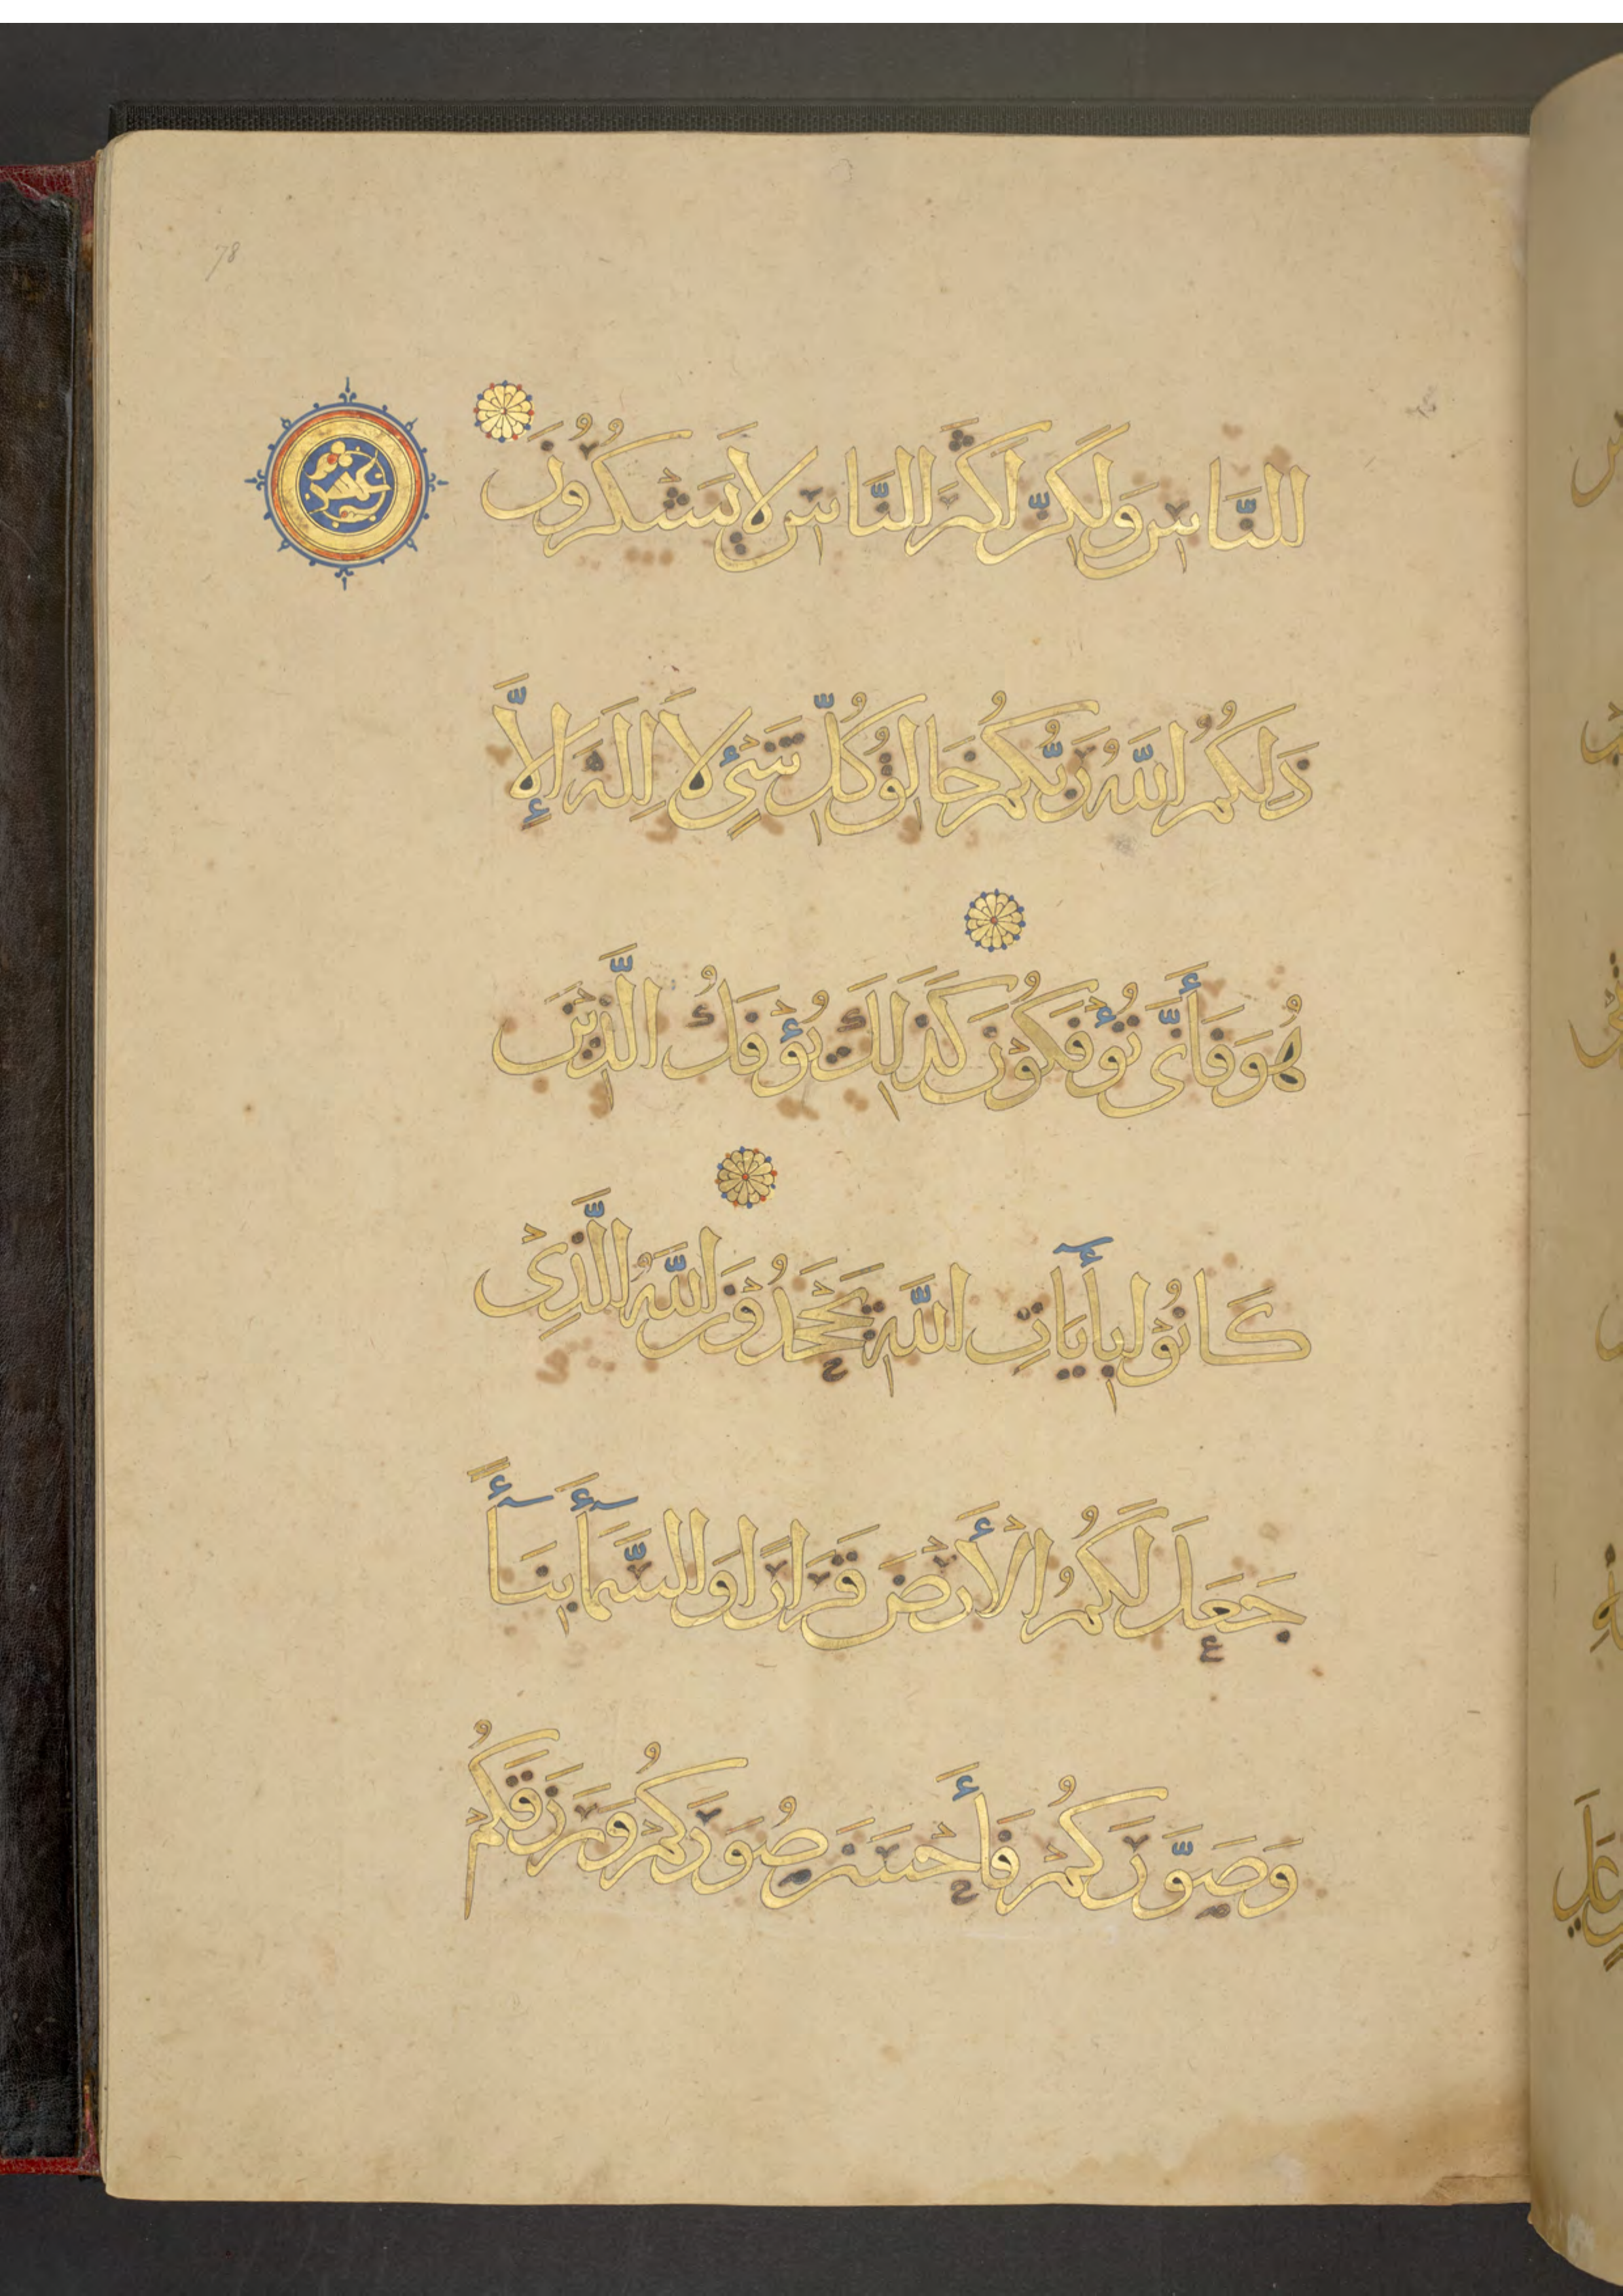 78
النَّاسِ وَلَكِنَّ أَكْثَرَ النَّاسِ لَا يَشْكُرُونَ
عشر
ذَلِكُمُ اللَّهُ رَبُّكُمْ خَالِقُ كُلِّ شَيْءٍ لَا إِلَهَ إِلَّا
هُوَ فَأَنَّى تُؤْفَكُونَ كَذَلِكَ يُؤْفَكُ الَّذِينَ
كَانُوا بِأَيَاتِ اللَّهِ يَجْحَدُونَ اللَّهُ الَّذِي
جَعَلَ لَكُمُ الْأَرْضَ قَرَارًا وَالسَّمَآءَ بِنَآءً
وَصَوَّرَكُمْ فَأَحْسَنَ صُوَرَكُمْ وَرَزَقَكُمْ